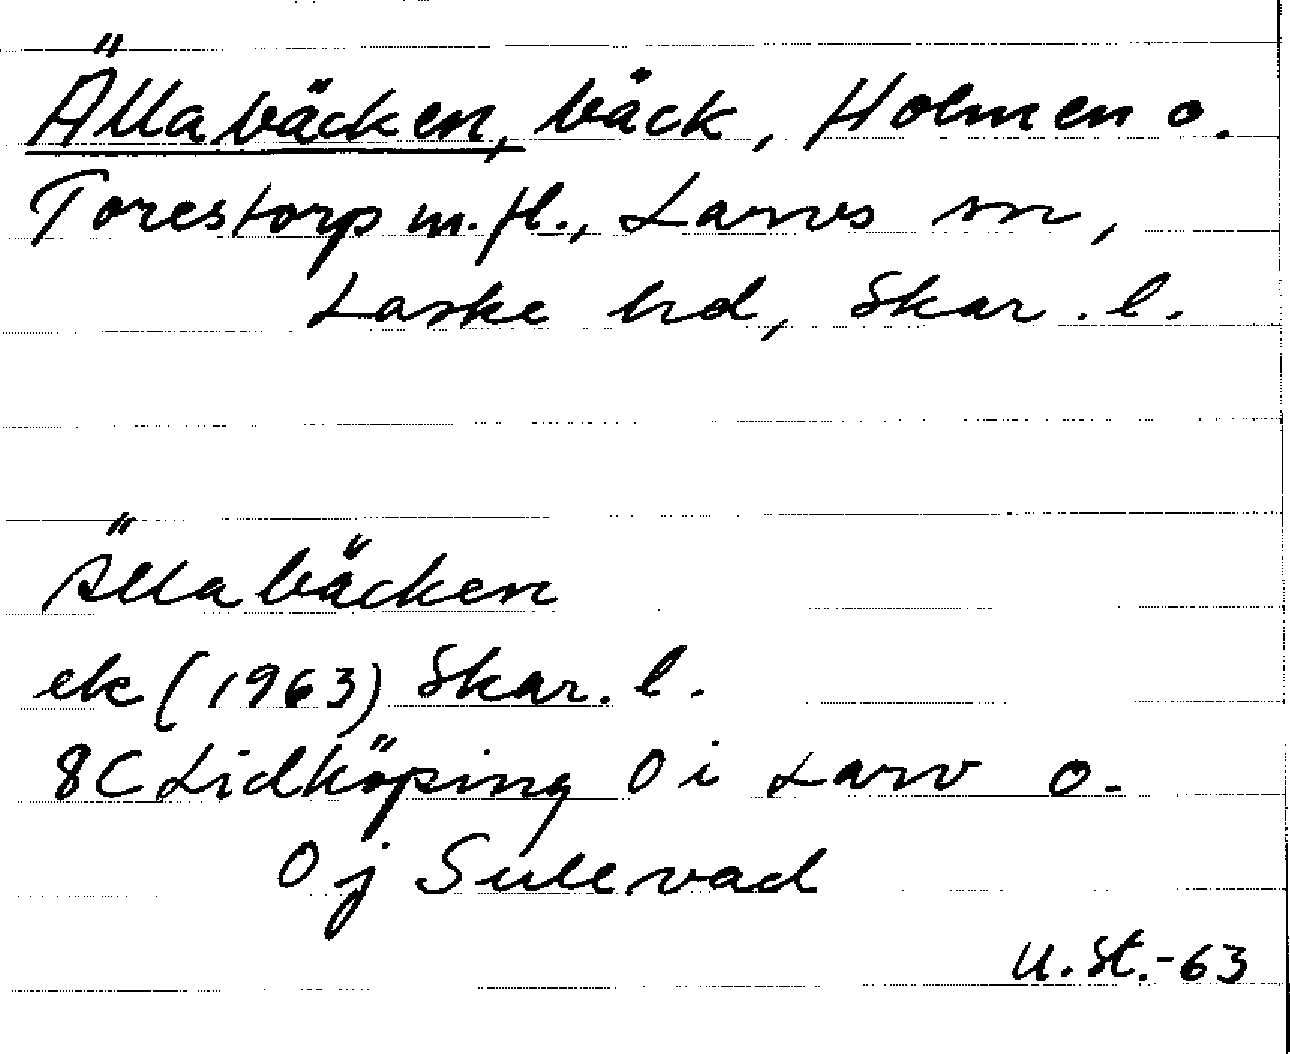 Ällabäcken, bäck, Holmen o.
Torestorp m.fl., Larvs sn,
Laske hd, Skar. l.
Ällabäcken
ek (1963) Skar. l.
8C Lidköping 0 i Larv o.
0 j Sulevad
U. St.-63